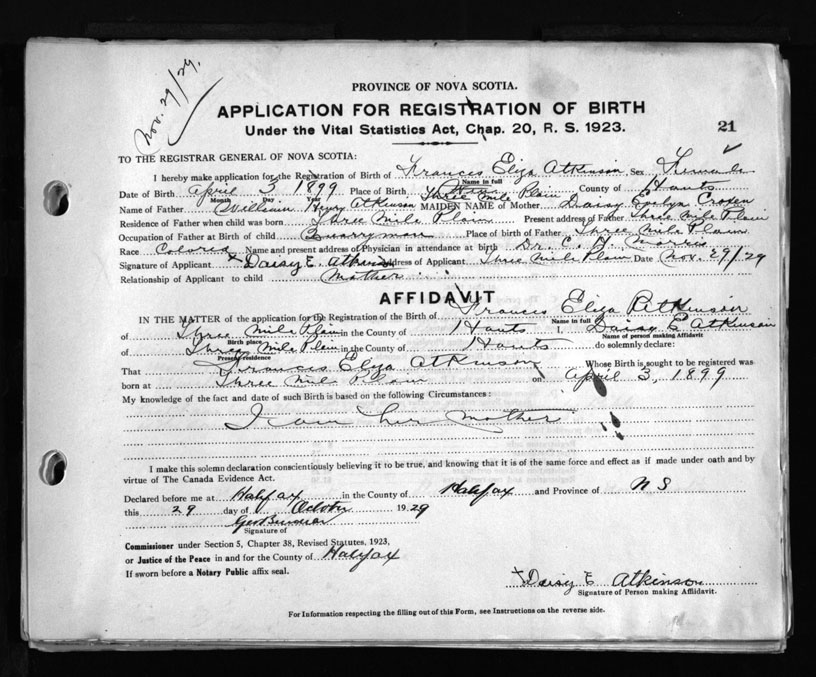 Nov. 29/29.
PROVINCE OF NOVA SCOTIA.
APPLICATION FOR REGISTRATION OF BIRTH
Under the Vital Statistics Act, Chap. 20, R. S. 1923.
21
TO THE REGISTRAR GENERAL OF NOVA SCOTIA:
I hereby make application for the Registration of Birth of Francis Eliza Atkinson Sex Female
Name in full
Date of Birth April 3 1899 Place of Birth Three Mile Plain County of Hants
Month Day Year
Name of Father William Henry Atkinson MAIDEN NAME of Mother Daisy Evelyn Croxen
Residence of Father when child was born Three Mile Plain Present address of Father Three Mile Plain
Occupation of Father at Birth of child Quarryman Place of birth of Father Three Mile Plain
Race Colored Name and present address of Physician in attendance at birth Dr. C. H. Morris
Signature of Applicant x Daisy E. Atkinson Address of Applicant Three Mile Plain Date Nov. 29/29
Relationship of Applicant to child Mother
AFFIDAVIT
IN THE MATTER of the application for the Registration of the Birth of Francis Eliza Atkinson
Name in full
of Three Mile Plain in the County of Hants I, Daisy E Atkinson
Birth place Name of person making Affidavit
of Three Mile Plain in the County of Hants do solemnly declare:
Present residence
That Francis Eliza Atkinson Whose Birth is sought to be registered was
born at Three Mile Plain on April 3, 1899
My knowledge of the fact and date of such Birth is based on the following Circumstances:
I am her mother
I make this solemn declaration conscientiously believing it to be true, and knowing that it is of the same force and effect as if made under oath and by
virtue of The Canada Evidence Act.
Declared before me at Halifax in the County of Halifax and Province of N S
this 29 day of October 1929
Signature of
Commissioner under Section 5, Chapter 38, Revised Statutes, 1923,
or Justice of the Peace in and for the County of Halifax
If sworn before a Notary Public affix seal.
x Daisy E Atkinson
Signature of Person making Affidavit.
For Information respecting the filling out of this Form, see Instructions on the reverse side.